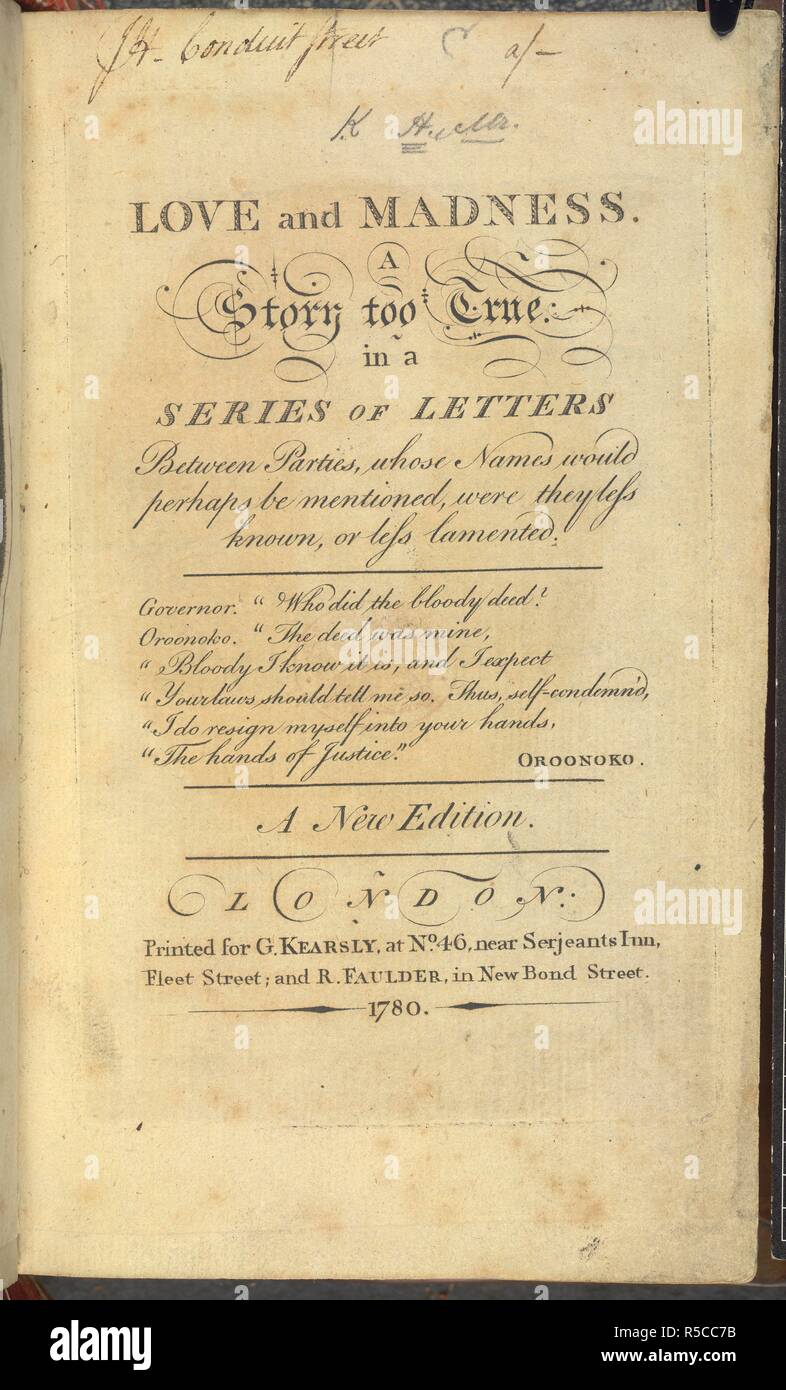 JH. Conduit street a/-
K H
LOVE and MADNESS.
A
Story too True:
in a
SERIES OF LETTERS
Between Parties, whose Names would
perhaps be mentioned, were they leſs
known, or leſs lamented.
Governor. “ Who did the bloody deed?
Oroonoko. “ The deed was mine,
“ Bloody I know it is, and I expect
“ Your laws should tell me so. Thus, self-condemn'd,
“ I do resign myself into your hands,
“ The hands of Justice.”
OROONOKO.
A New Edition.
LONDON:
Printed for G. KEARSLY, at No. 46, near Serjeants Inn,
Fleet Street; and R. FAULDER, in New Bond Street.
1780.
alamy
alamy
a
Image ID: R5CC7B
www.alamy.com